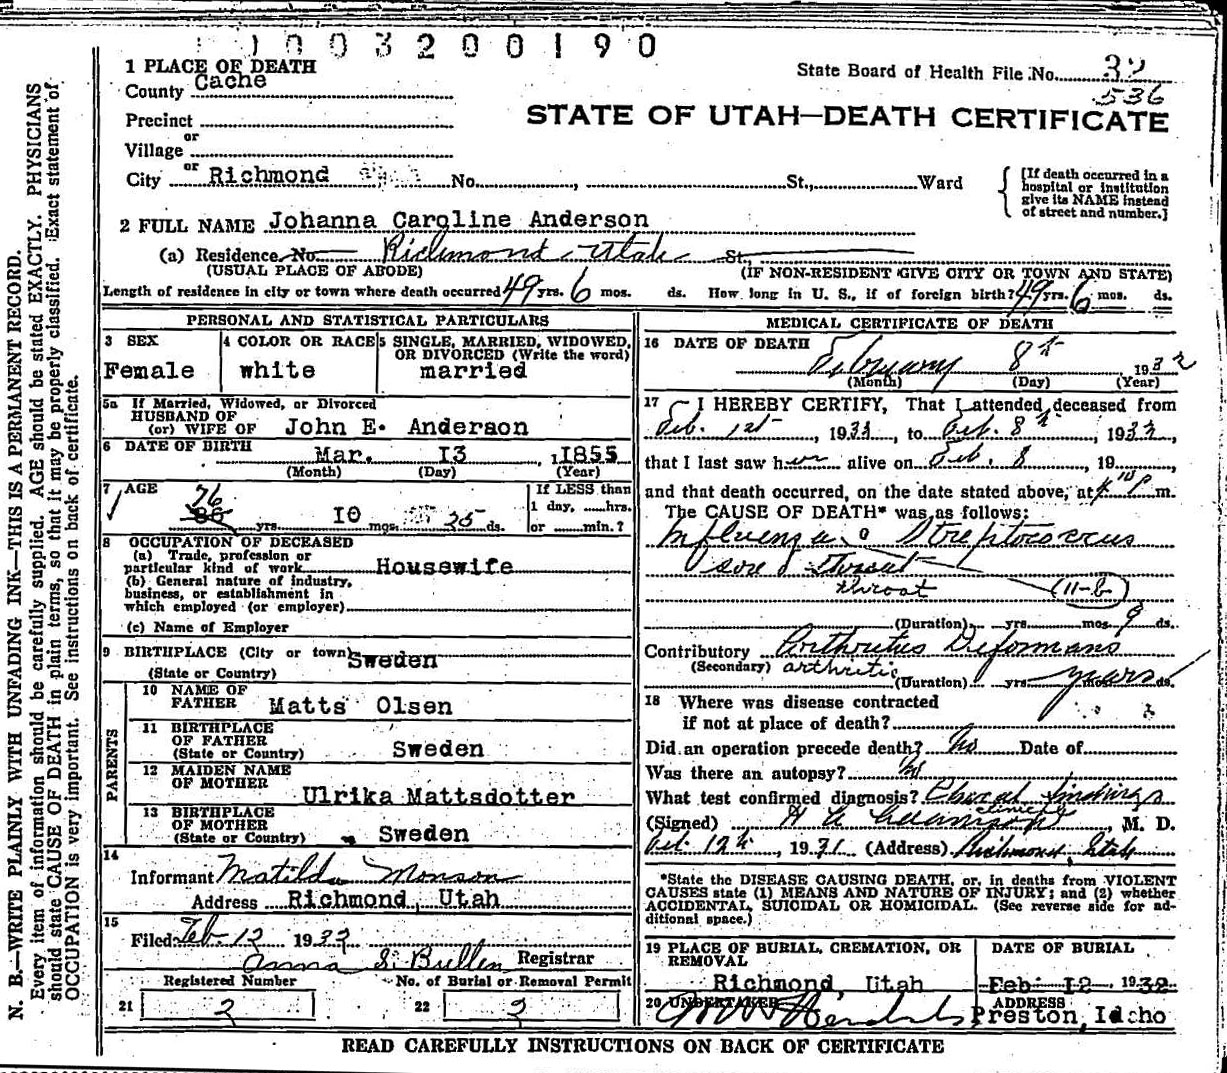 1003200190
1 PLACE OF DEATH
County Cache
State Board of Health File No. 32
536
Precinct
or
Village
or
City Richmond No. , St., Ward
STATE OF UTAH—DEATH CERTIFICATE
[If death occurred in a
hospital or institution
give its NAME instead
of street and number.]
2 FULL NAME Johanna Caroline Anderson
(a) Residence No. Richmond Utah St.,
(USUAL PLACE OF ABODE) (IF NON-RESIDENT GIVE CITY OR TOWN AND STATE)
Length of residence in city or town where death occurred 49 yrs. 6 mos. ds. How long in U. S., if of foreign birth? 49 yrs. 6 mos. ds.
PERSONAL AND STATISTICAL PARTICULARS
3 SEX
Female
4 COLOR OR RACE
white
5 SINGLE, MARRIED, WIDOWED,
OR DIVORCED (Write the word)
married
5a If Married, Widowed, or Divorced
HUSBAND OF
(or) WIFE OF John E. Anderson
6 DATE OF BIRTH Mar. 13 , 1855
(Month) (Day) (Year)
7 AGE
76
86 yrs. 10 mos. 25 ds.
If LESS than
1 day, ......hrs.
or .......min.?
8 OCCUPATION OF DECEASED
(a) Trade, profession or
particular kind of work Housewife
(b) General nature of industry,
business, or establishment in
which employed (or employer)
(c) Name of Employer
9 BIRTHPLACE (City or town) Sweden
(State or Country)
PARENTS
10 NAME OF
FATHER Matts Olsen
11 BIRTHPLACE
OF FATHER
(State or Country) Sweden
12 MAIDEN NAME
OF MOTHER
Ulrika Mattsdotter
13 BIRTHPLACE
OF MOTHER
(State or Country) Sweden
14
Informant Matilda Monson
Address Richmond, Utah
15
Filed Feb. 12 1932
Anna S. Bullen Registrar
Registered Number No. of Burial or Removal Permit
21 2 22 2
MEDICAL CERTIFICATE OF DEATH
16 DATE OF DEATH
February 8th 1932
(Month) (Day) (Year)
17 I HEREBY CERTIFY, That I attended deceased from
Feb. 1st , 1932, to Feb. 8th, 1932,
that I last saw her alive on Feb. 8 , 19......,
and that death occurred, on the date stated above, at m.
The CAUSE OF DEATH* was as follows:
Influenza Streptococcus
sore throat
throat (11-b)
(Duration) yrs. mos. 9 ds.
Contributory Arthritus Deformans
(Secondary) arthritis
(Duration) yrs. years mos. ds.
18 Where was disease contracted
if not at place of death?
Did an operation precede death? No Date of
Was there an autopsy? No
What test confirmed diagnosis? Clinical findings
clinical
(Signed) , M. D.
Feb. 12th, 1931 (Address) Richmond, Utah
*State the DISEASE CAUSING DEATH, or, in deaths from VIOLENT
CAUSES state (1) MEANS AND NATURE OF INJURY; and (2) whether
ACCIDENTAL, SUICIDAL OR HOMICIDAL. (See reverse side for ad-
ditional space.)
19 PLACE OF BURIAL, CREMATION, OR
REMOVAL
Richmond, Utah
DATE OF BURIAL
Feb. 12, 1932
20 UNDERTAKER
ADDRESS
Preston, Idaho
READ CAREFULLY INSTRUCTIONS ON BACK OF CERTIFICATE
N. B.—WRITE PLAINLY WITH UNFADING INK—THIS IS A PERMANENT RECORD.
Every item of information should be carefully supplied. AGE should be stated EXACTLY. PHYSICIANS
should state CAUSE OF DEATH in plain terms, so that it may be properly classified. Exact statement of
OCCUPATION is very important. See instructions on back of certificate.